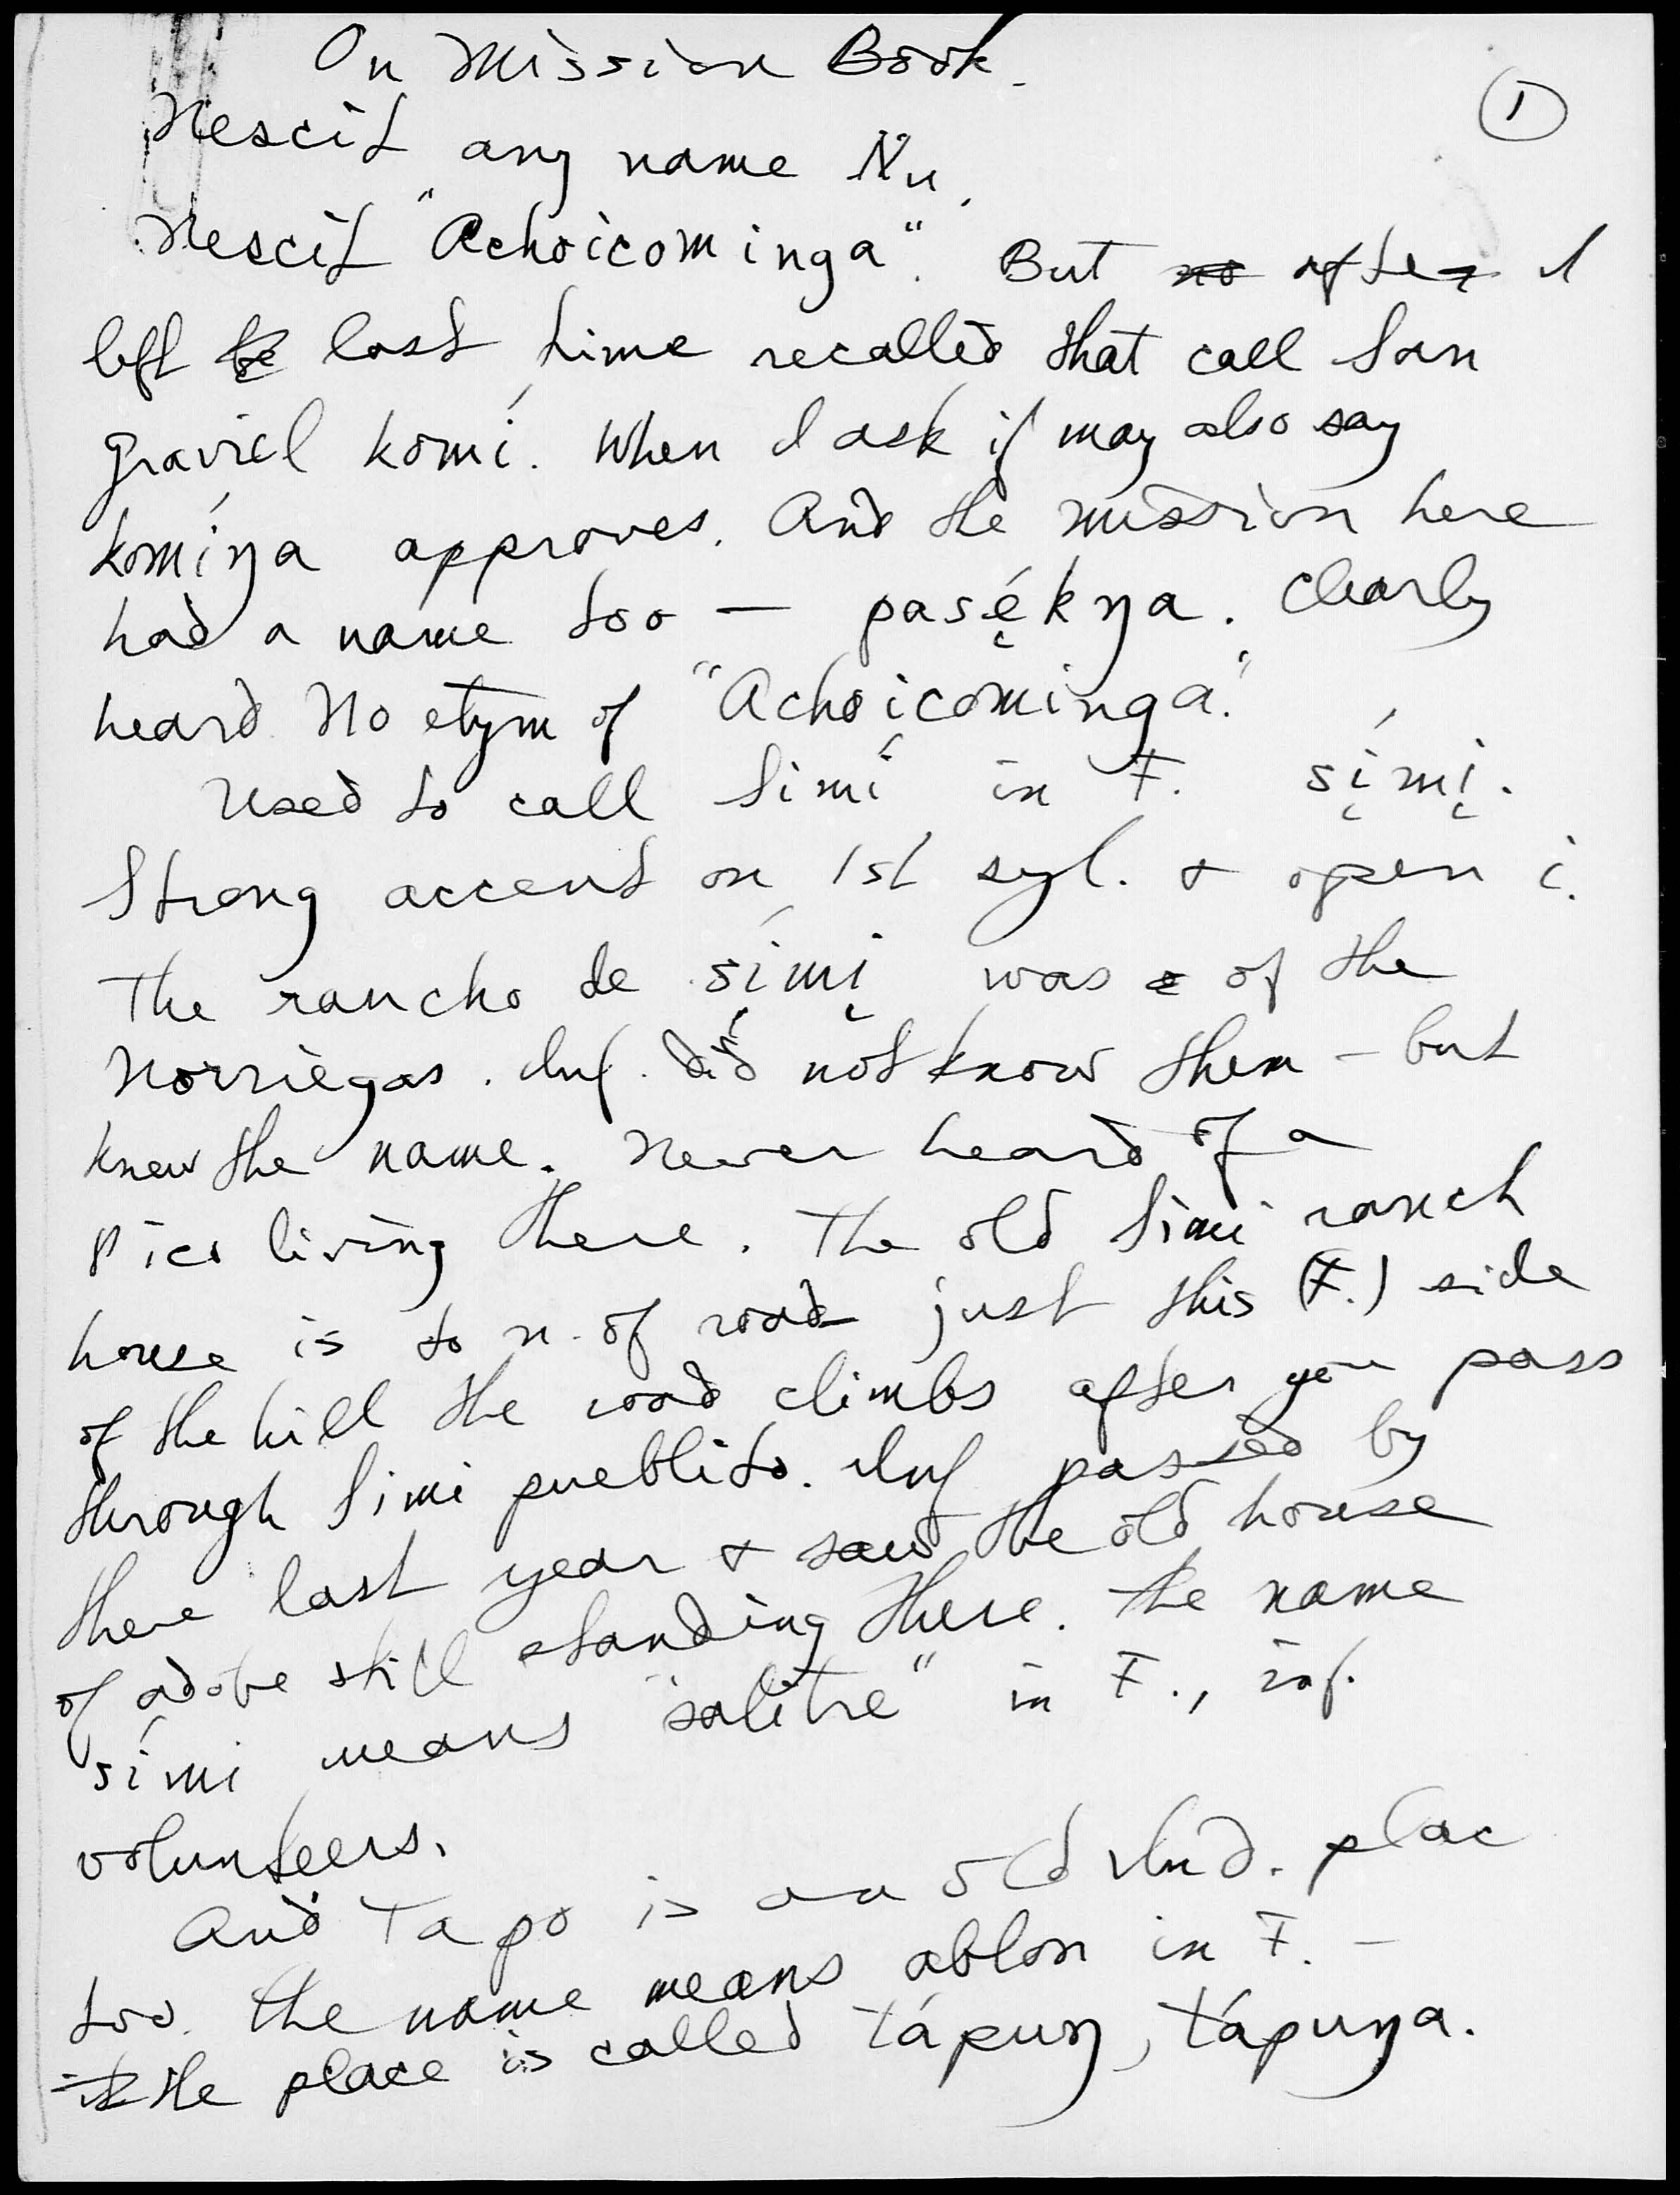 On Mission Book.
①
Nescit any name Nu.
Nescit "Achoicominga". But no after I
left he last time recalled that call San
Graviel komí. When I ask if may also say
komíŋa approves. And the mission here
had a name too — pasę́kŋa. Clearly
heard. No etym of "Achoicominga."
Used to call Simí in F. sį́mį.
Strong accent on 1st syl. & open i.
The rancho de sį́mį was of the
Norriegas. Inf. did not know them – but
knew the name. Never heard of a
Pico living there. The old Simi ranch
house is to n. of road just this (F.) side
of the hill the road climbs after you pass
through Simi pueblito. Inf passed by
there last year & saw the old house
of adobe still standing there. The name
símí means "salitre" in F., inf.
volunteers.
And Tapo is an old Ind. plac
too. The name means ablon in F. –
it the place is called tápuŋ, tápuŋa.